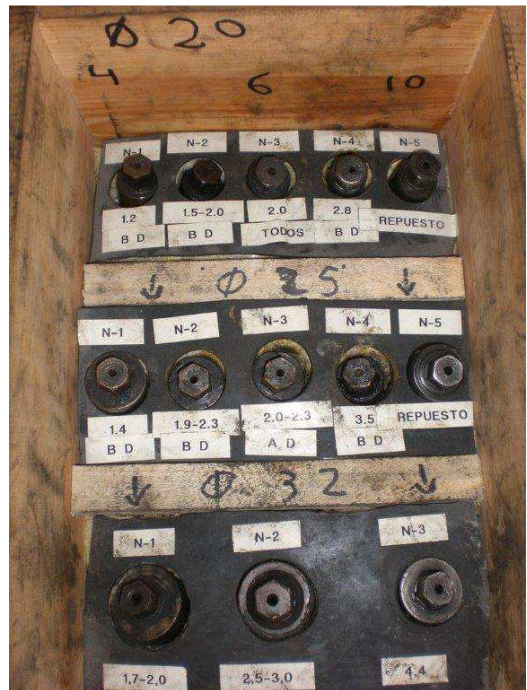 Ø 20
4 6 10
N-1 N-2 N-3 N-4 N-5
1.2 1.5-2.0 2.0 2.8 REPUESTO
B D B D TODOS B D
↓ Ø 25 ↓
N-1 N-2 N-3 N-4 N-5
1.4 1.9-2.3 2.0-2.3 3.5 REPUESTO
B D B D A D B D
↓ Ø 32 ↓
N-1 N-2 N-3
1,7-2,0 2,5-3,0 4,4